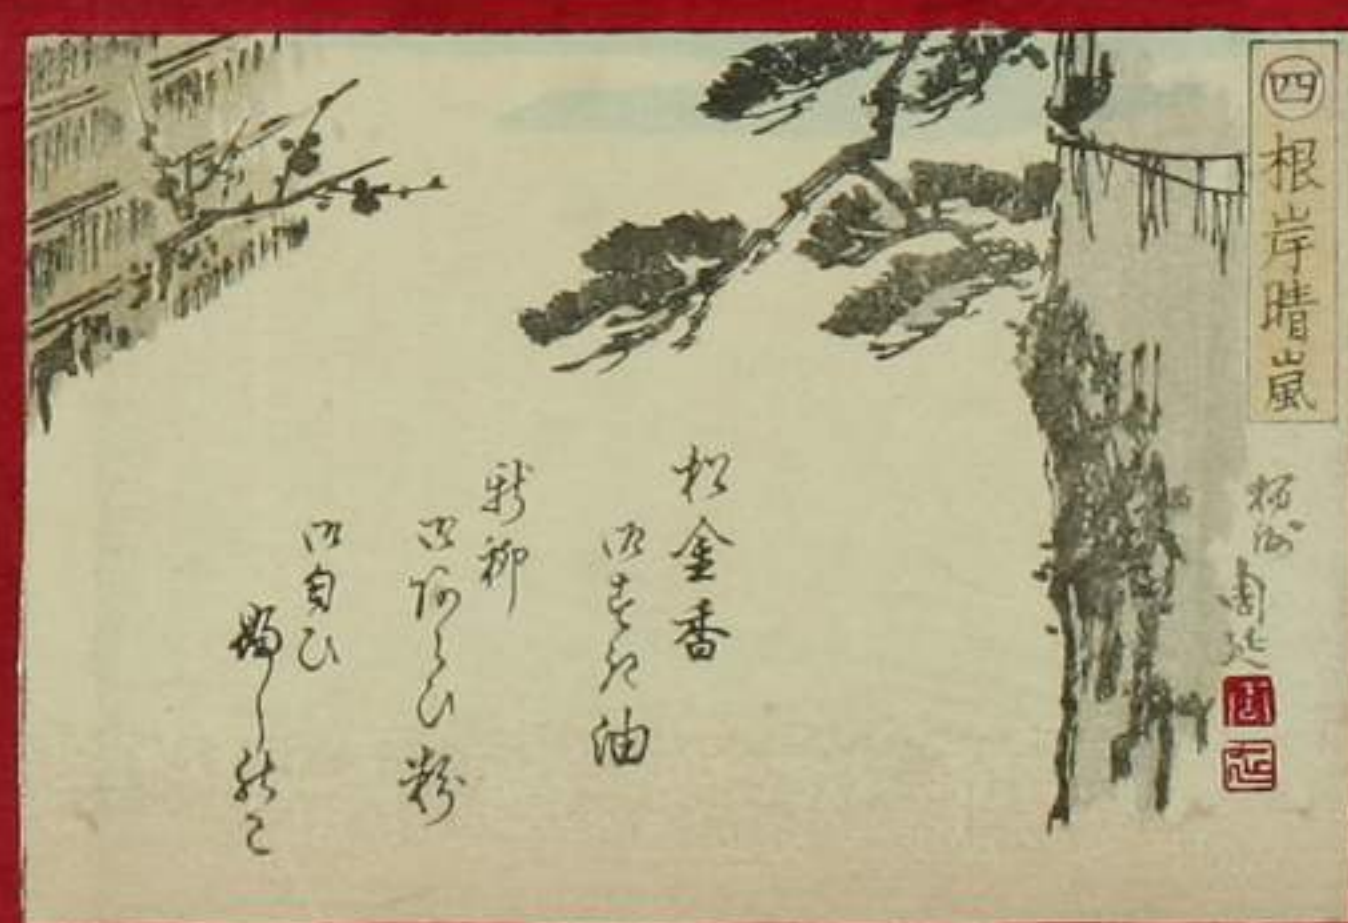 ㊃根岸晴嵐
楊洲
周延
周
延
松金香
御すき油
新柳
御阿らひ粉
御匂ひ